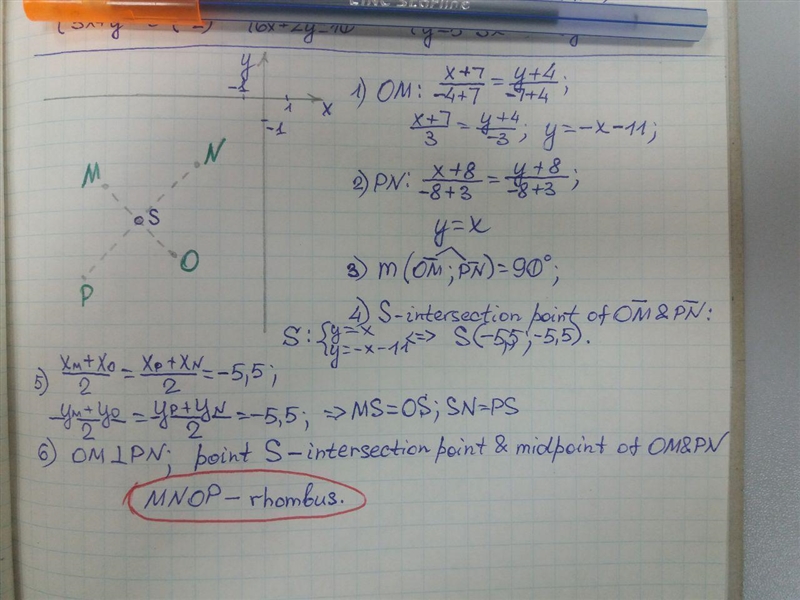 LINE Slimline
y
-1
1
x
-1
M
N
S
O
P
1) OM: (x+7)/(-4+7) = (y+4)/(-7+4);
(x+7)/3 = (y+4)/(-3); y=-x-11;
2) PN: (x+8)/(-8+3) = (y+8)/(-8+3);
y=x
3) m(OM;PN)=90°;
4) S-intersection point of OM&PN:
S: {y=x
{y=-x-11 <=> S(-5,5;-5,5).
5) (xM+xO)/2 = (xP+xN)/2 = -5,5;
(yM+yO)/2 = (yP+yN)/2 = -5,5; => MS=OS; SN=PS
6) OM⊥PN; point S-intersection point & midpoint of OM&PN
MNOP - rhombus.